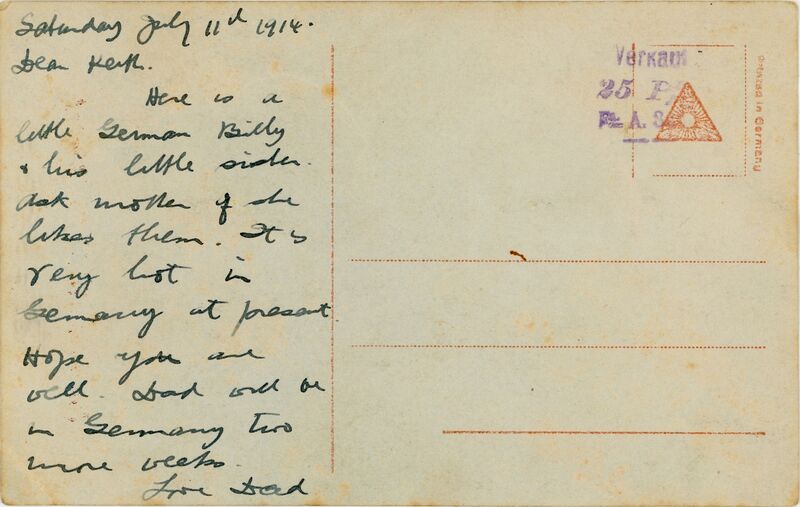 Saturday July 11th 1914.
Dear Keith.
Here is a
little German Billy
& his little sister.
Ask mother if she
likes them. It is
very hot in
Germany at present
Hope you are
well. Dad will be
in Germany two
more weeks.
Love Dad
Verkauf
25 Pf
A. 3
Printed in Germany